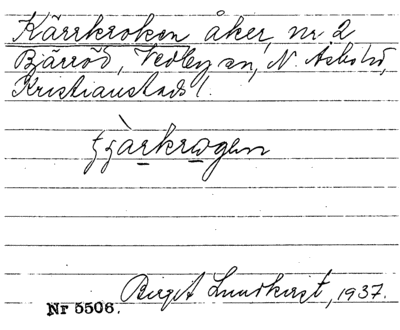 Kärrkroken åker, nr 2
Bjärröd, Vedby sn, N. Åsbo hd,
Kristianstads l.
Birgit Lundkvist, 1937.
Nr 5506.